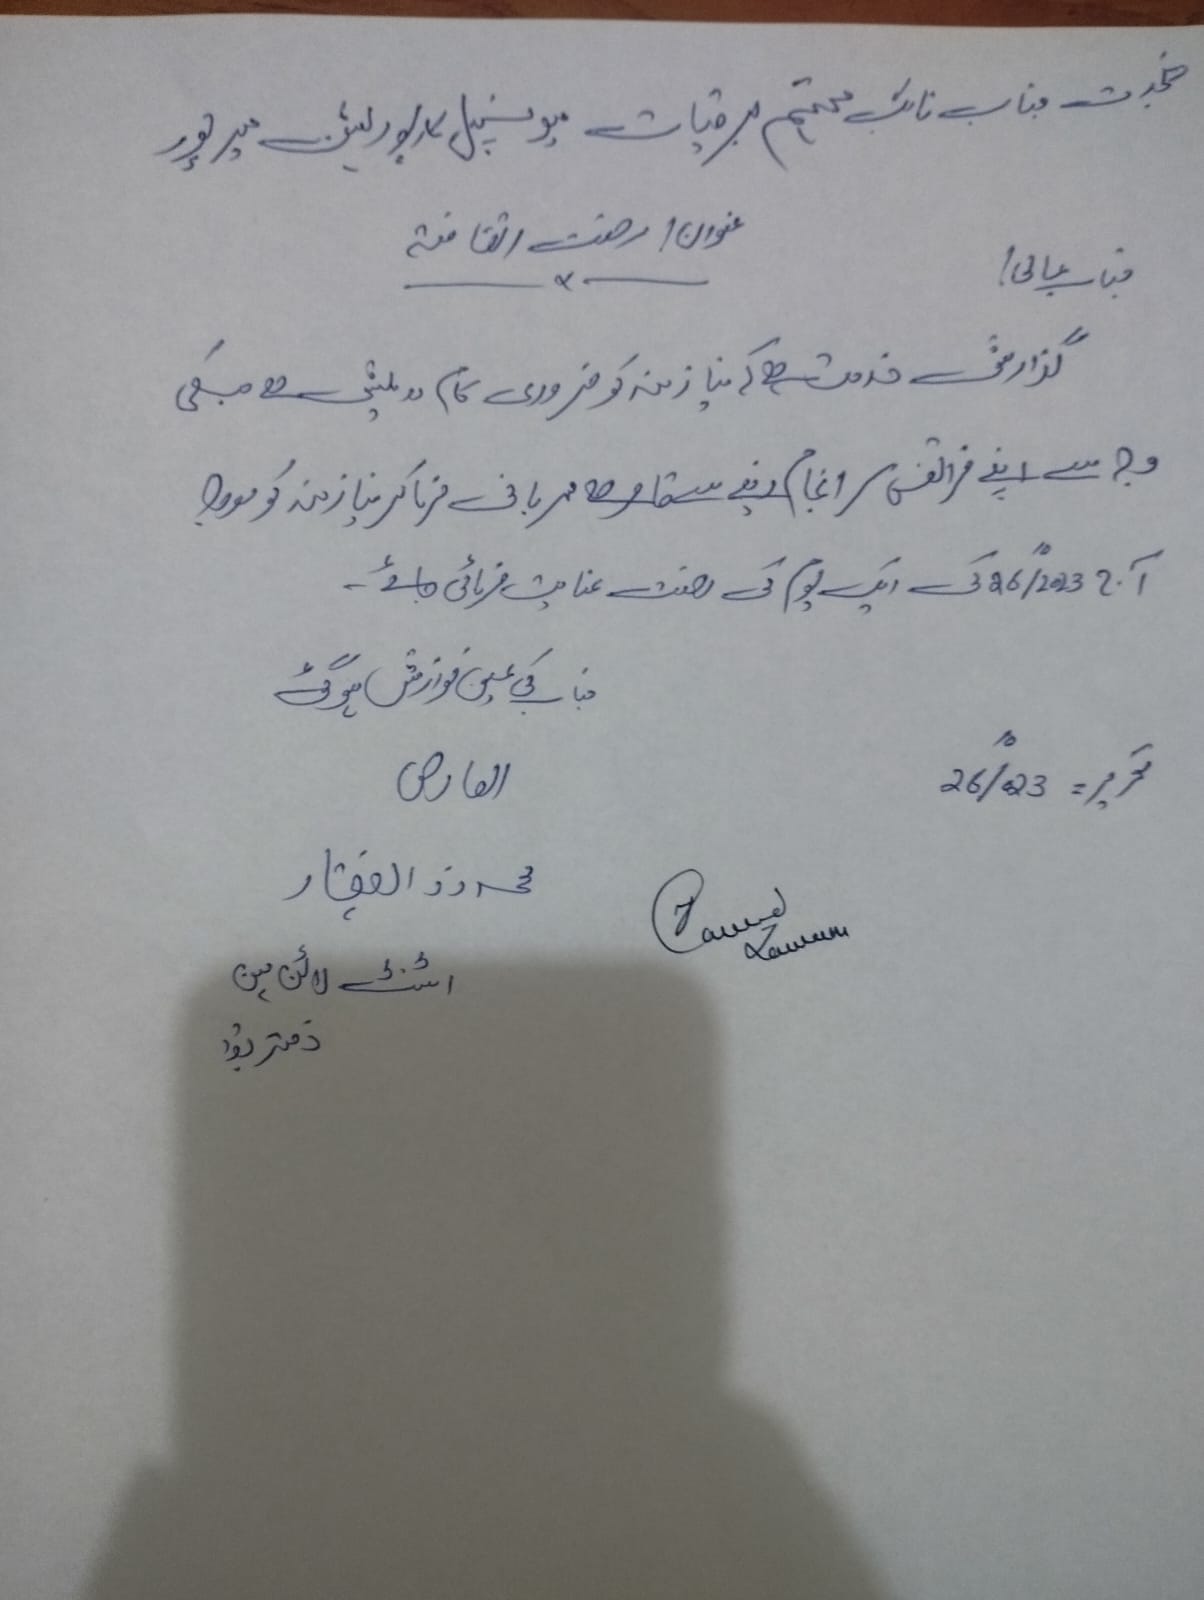 بخدمت جناب نائب مہتمم برقیات میونسپل کارپوریشن میرپور
عنوان! رخصت اتفاقیہ
جناب عالی!
گذارش خدمت ہے کہ نیازمند کو ضروری کام درپیش ہے جسکی
وجہ سے اپنے فرائض سرانجام دینے سے قاصر ہے مہربانی فرما کر نیازمند کو مورخہ
آج 26/10/2023 کی ایک یوم کی رخصت عنایت فرمائی جائے۔
جناب کی عین نوازش ہوگی
تحریر = 26/10/023
العارض
محمد ذوالفقار
اسسٹنٹ لائن مین
دفتر ہذا